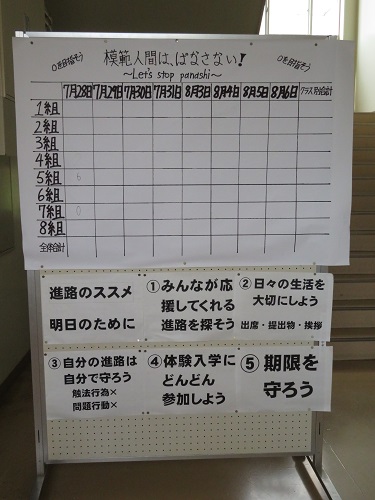 0を目指そう
模範人間は、ぱなさない!
0を目指そう
〜Let's stop panashi〜
7月28日 7月29日 7月30日 7月31日 8月3日 8月4日 8月5日 8月6日 クラス別合計
1組
2組
3組
4組
5組 6
6組
7組 0
8組
全体合計
進路のススメ
明日のために
①みんなが応
援してくれる
進路を探そう
②日々の生活を
大切にしよう
出席・提出物・挨拶
③自分の進路は
自分で守ろう
触法行為×
問題行動×
④体験入学に
どんどん
参加しよう
⑤期限を
守ろう